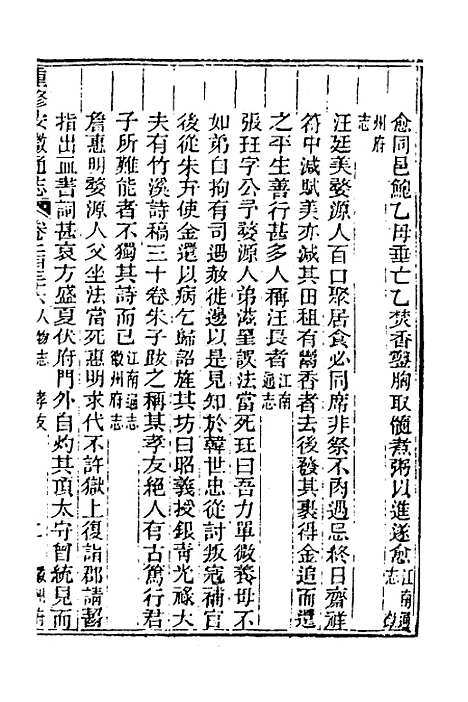 愈同邑鮑乙母垂亡乙焚香盬胸取髓煮粥以進遂愈江南通志
州府志
汪廷美婺源人百口聚居食必同席非祭不肉過忌終日齋鮮
符中減賦美亦減其田租有鬻香者去後發其裹得金追而還
之平生善行甚多人稱汪長者江南通志
張珏字公予婺源人弟滋呈誤法當死珏曰吾力單微養母不
如弟自拘有司遇赦徙邊以是見知於韓世忠從討叛寇補官
後從朱弁使金還以病乞歸詔旌其坊曰昭義授銀青光祿大
夫有竹溪詩稿三十卷朱子跋之稱其孝友絕人有古篤行君
子所難能者不獨其詩而已江南通志徽州府志
詹惠明婺源人父坐法當死惠明求代不許獄上復詣郡請齧
指出血書詞甚哀方盛夏伏府門外自灼其頂太守曾統見而
重修安徽通志 卷二百三十六人物志 孝友 二 徽州府